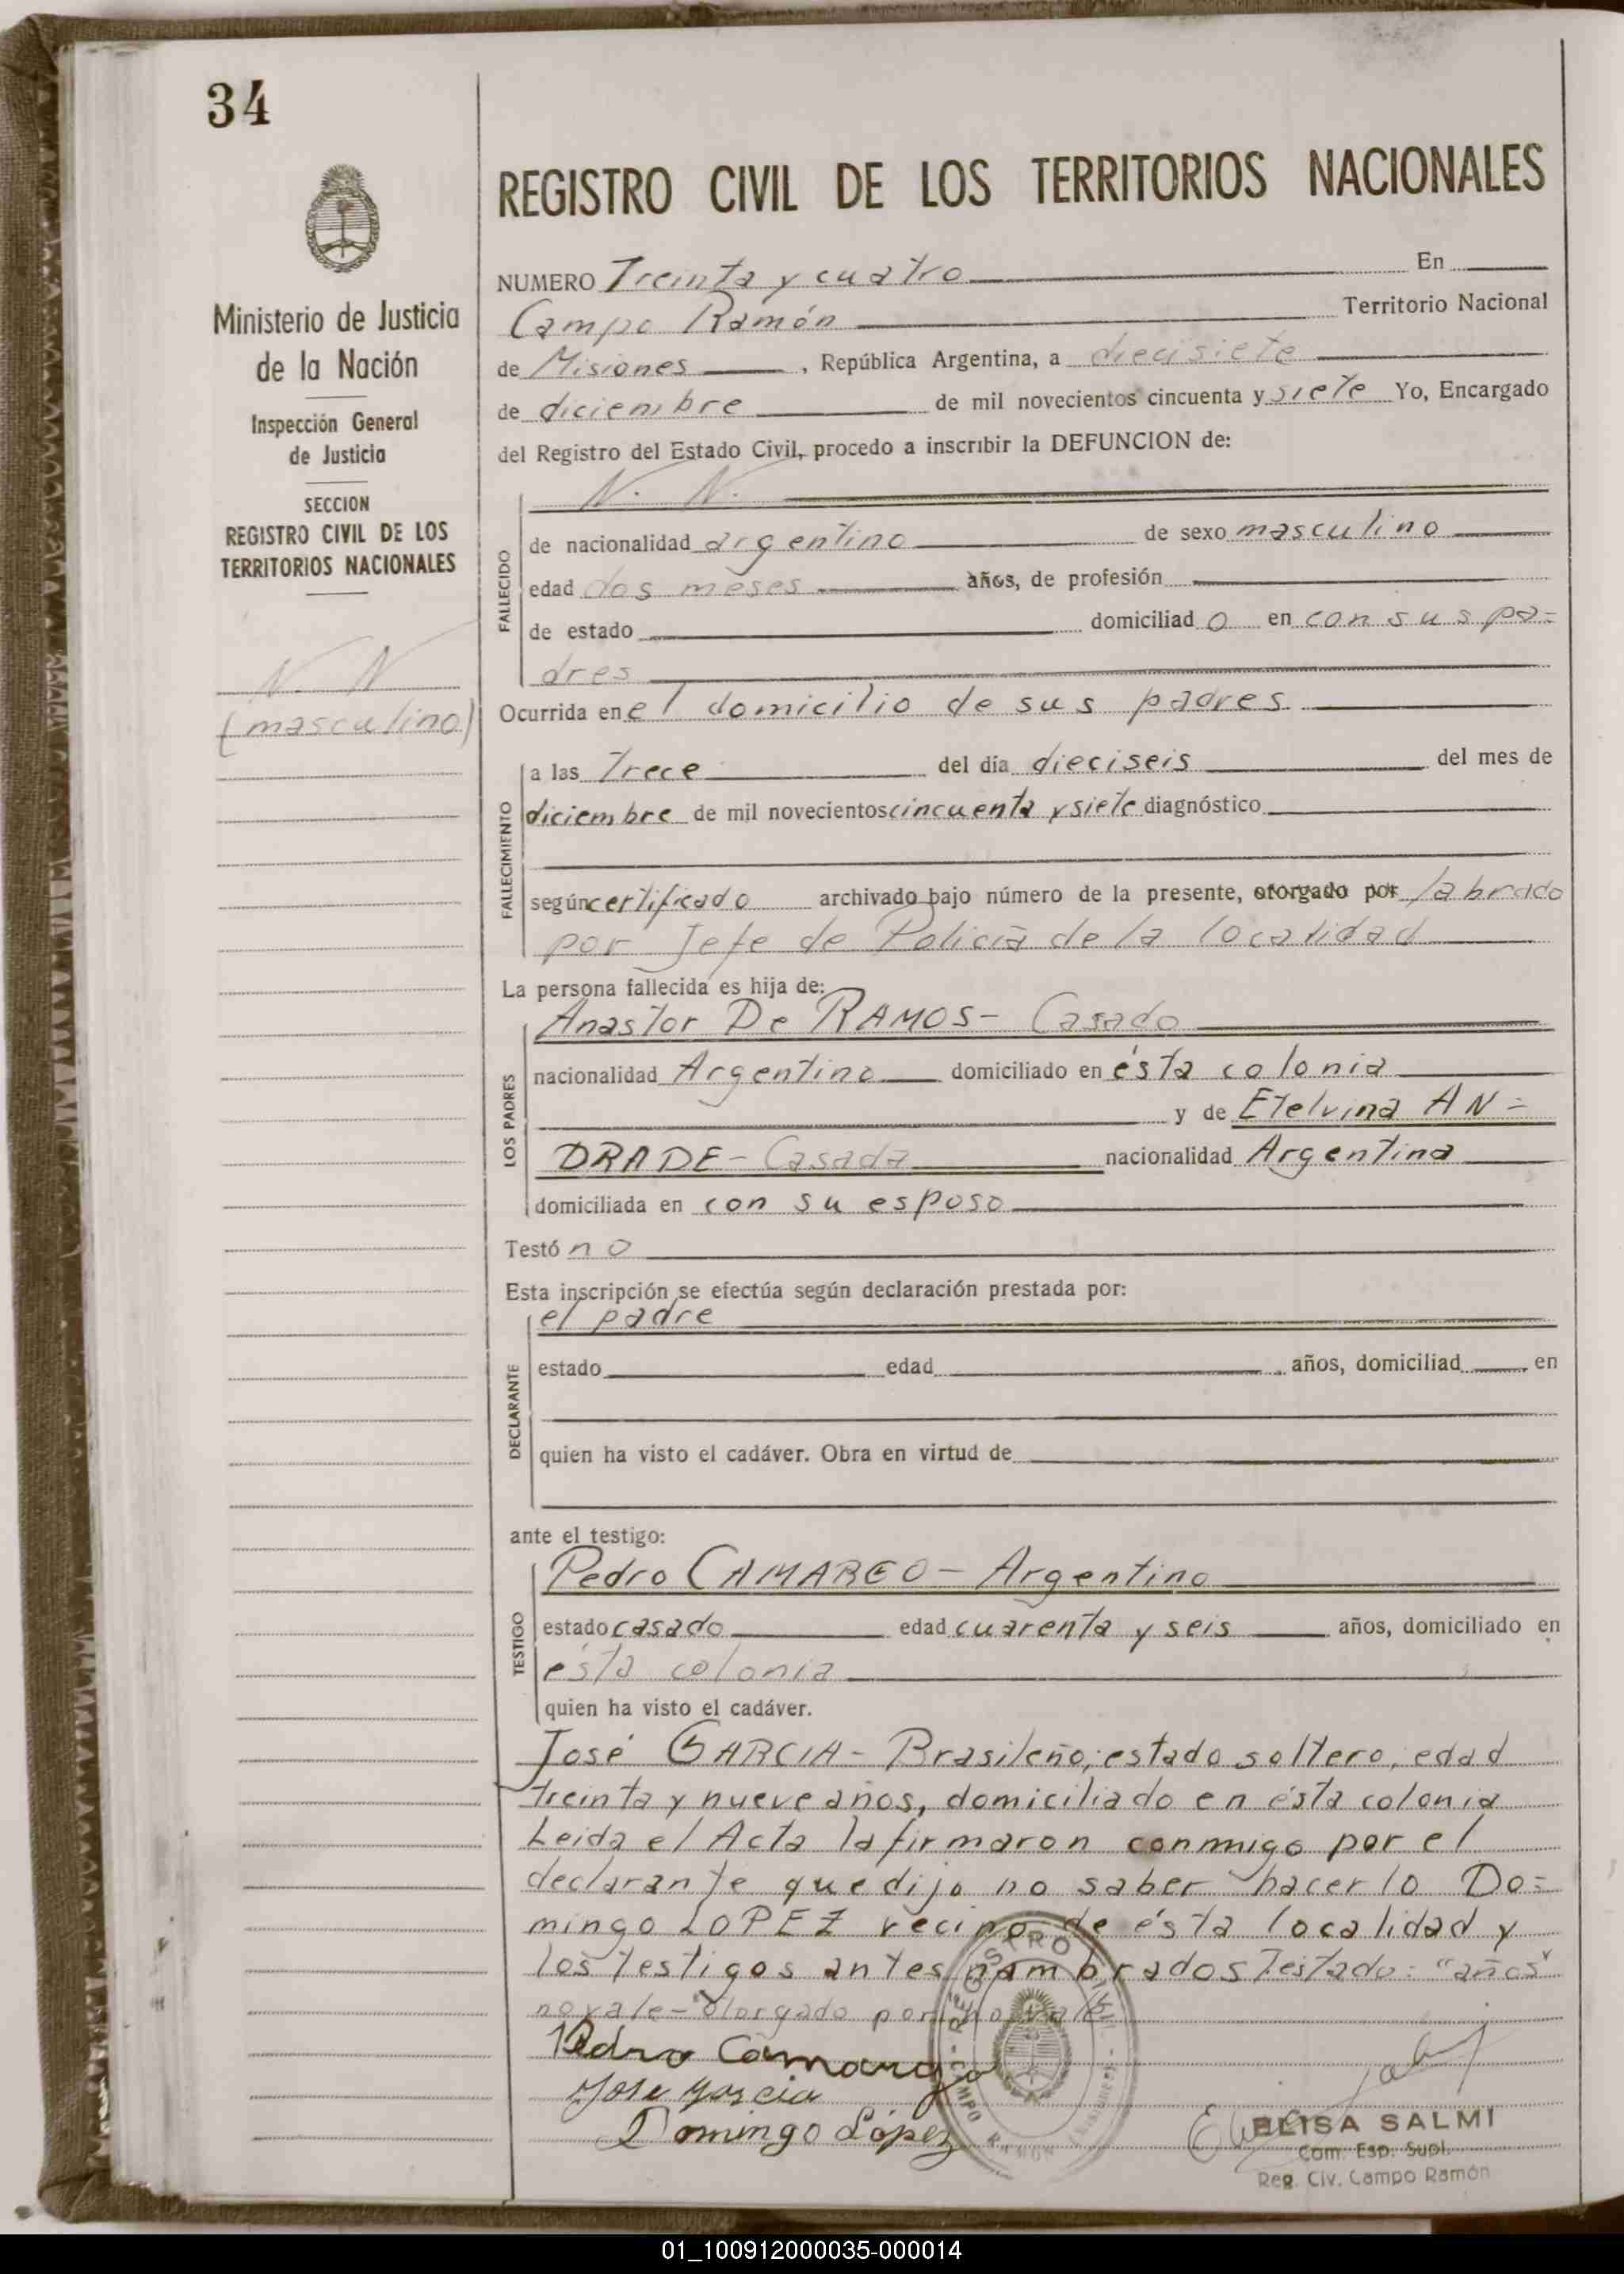 34
Ministerio de Justicia
de la Nación
Inspección General
de Justicia
SECCION
REGISTRO CIVIL DE LOS
TERRITORIOS NACIONALES
N. N.
(masculino)
REGISTRO CIVIL DE LOS TERRITORIOS NACIONALES
NUMERO Treinta y cuatro En
Campo Ramón Territorio Nacional
de Misiones, República Argentina, a diecisiete
de diciembre de mil novecientos cincuenta y siete Yo, Encargado
del Registro del Estado Civil, procedo a inscribir la DEFUNCION de:
N. N.
FALLECIDO
de nacionalidad argentino de sexo masculino
edad dos meses años, de profesión
de estado domiciliad o en con sus pa=
dres
Ocurrida en el domicilio de sus padres
FALLECIMIENTO
a las Trece del día dieciseis del mes de
diciembre de mil novecientos cincuenta y siete diagnóstico
según certificado archivado bajo número de la presente, otorgado por labrado
por Jefe de Policía de la localidad
La persona fallecida es hija de:
LOS PADRES
Anastor De RAMOS- Casado
nacionalidad Argentino domiciliado en ésta colonia
y de Etelvina AN=
DRADE- Casada nacionalidad Argentina
domiciliada en con su esposo
Testó no
Esta inscripción se efectúa según declaración prestada por:
DECLARANTE
el padre
estado edad años, domiciliad en
quien ha visto el cadáver. Obra en virtud de
ante el testigo:
TESTIGO
Pedro CAMARGO- Argentino
estado casado edad cuarenta y seis años, domiciliado en
ésta colonia
quien ha visto el cadáver.
José GARCIA- Brasileño; estado soltero, edad
treinta y nueve años, domiciliado en ésta colonia
Leida el Acta la firmaron conmigo por el
declarante que dijo no saber hacerlo Do=
mingo LOPEZ vecino de ésta localidad y
los testigos antes nombrados Testado: "años"
no vale- otorgado por: no vale
Pedro Camargo
Jose Garcia
Domingo López
REGISTRO CIVIL
CAMPO RAMON (MISIONES)
ELISA SALMI
Com. Esp. Supl.
Reg. Civ. Campo Ramón
01_100912000035-000014